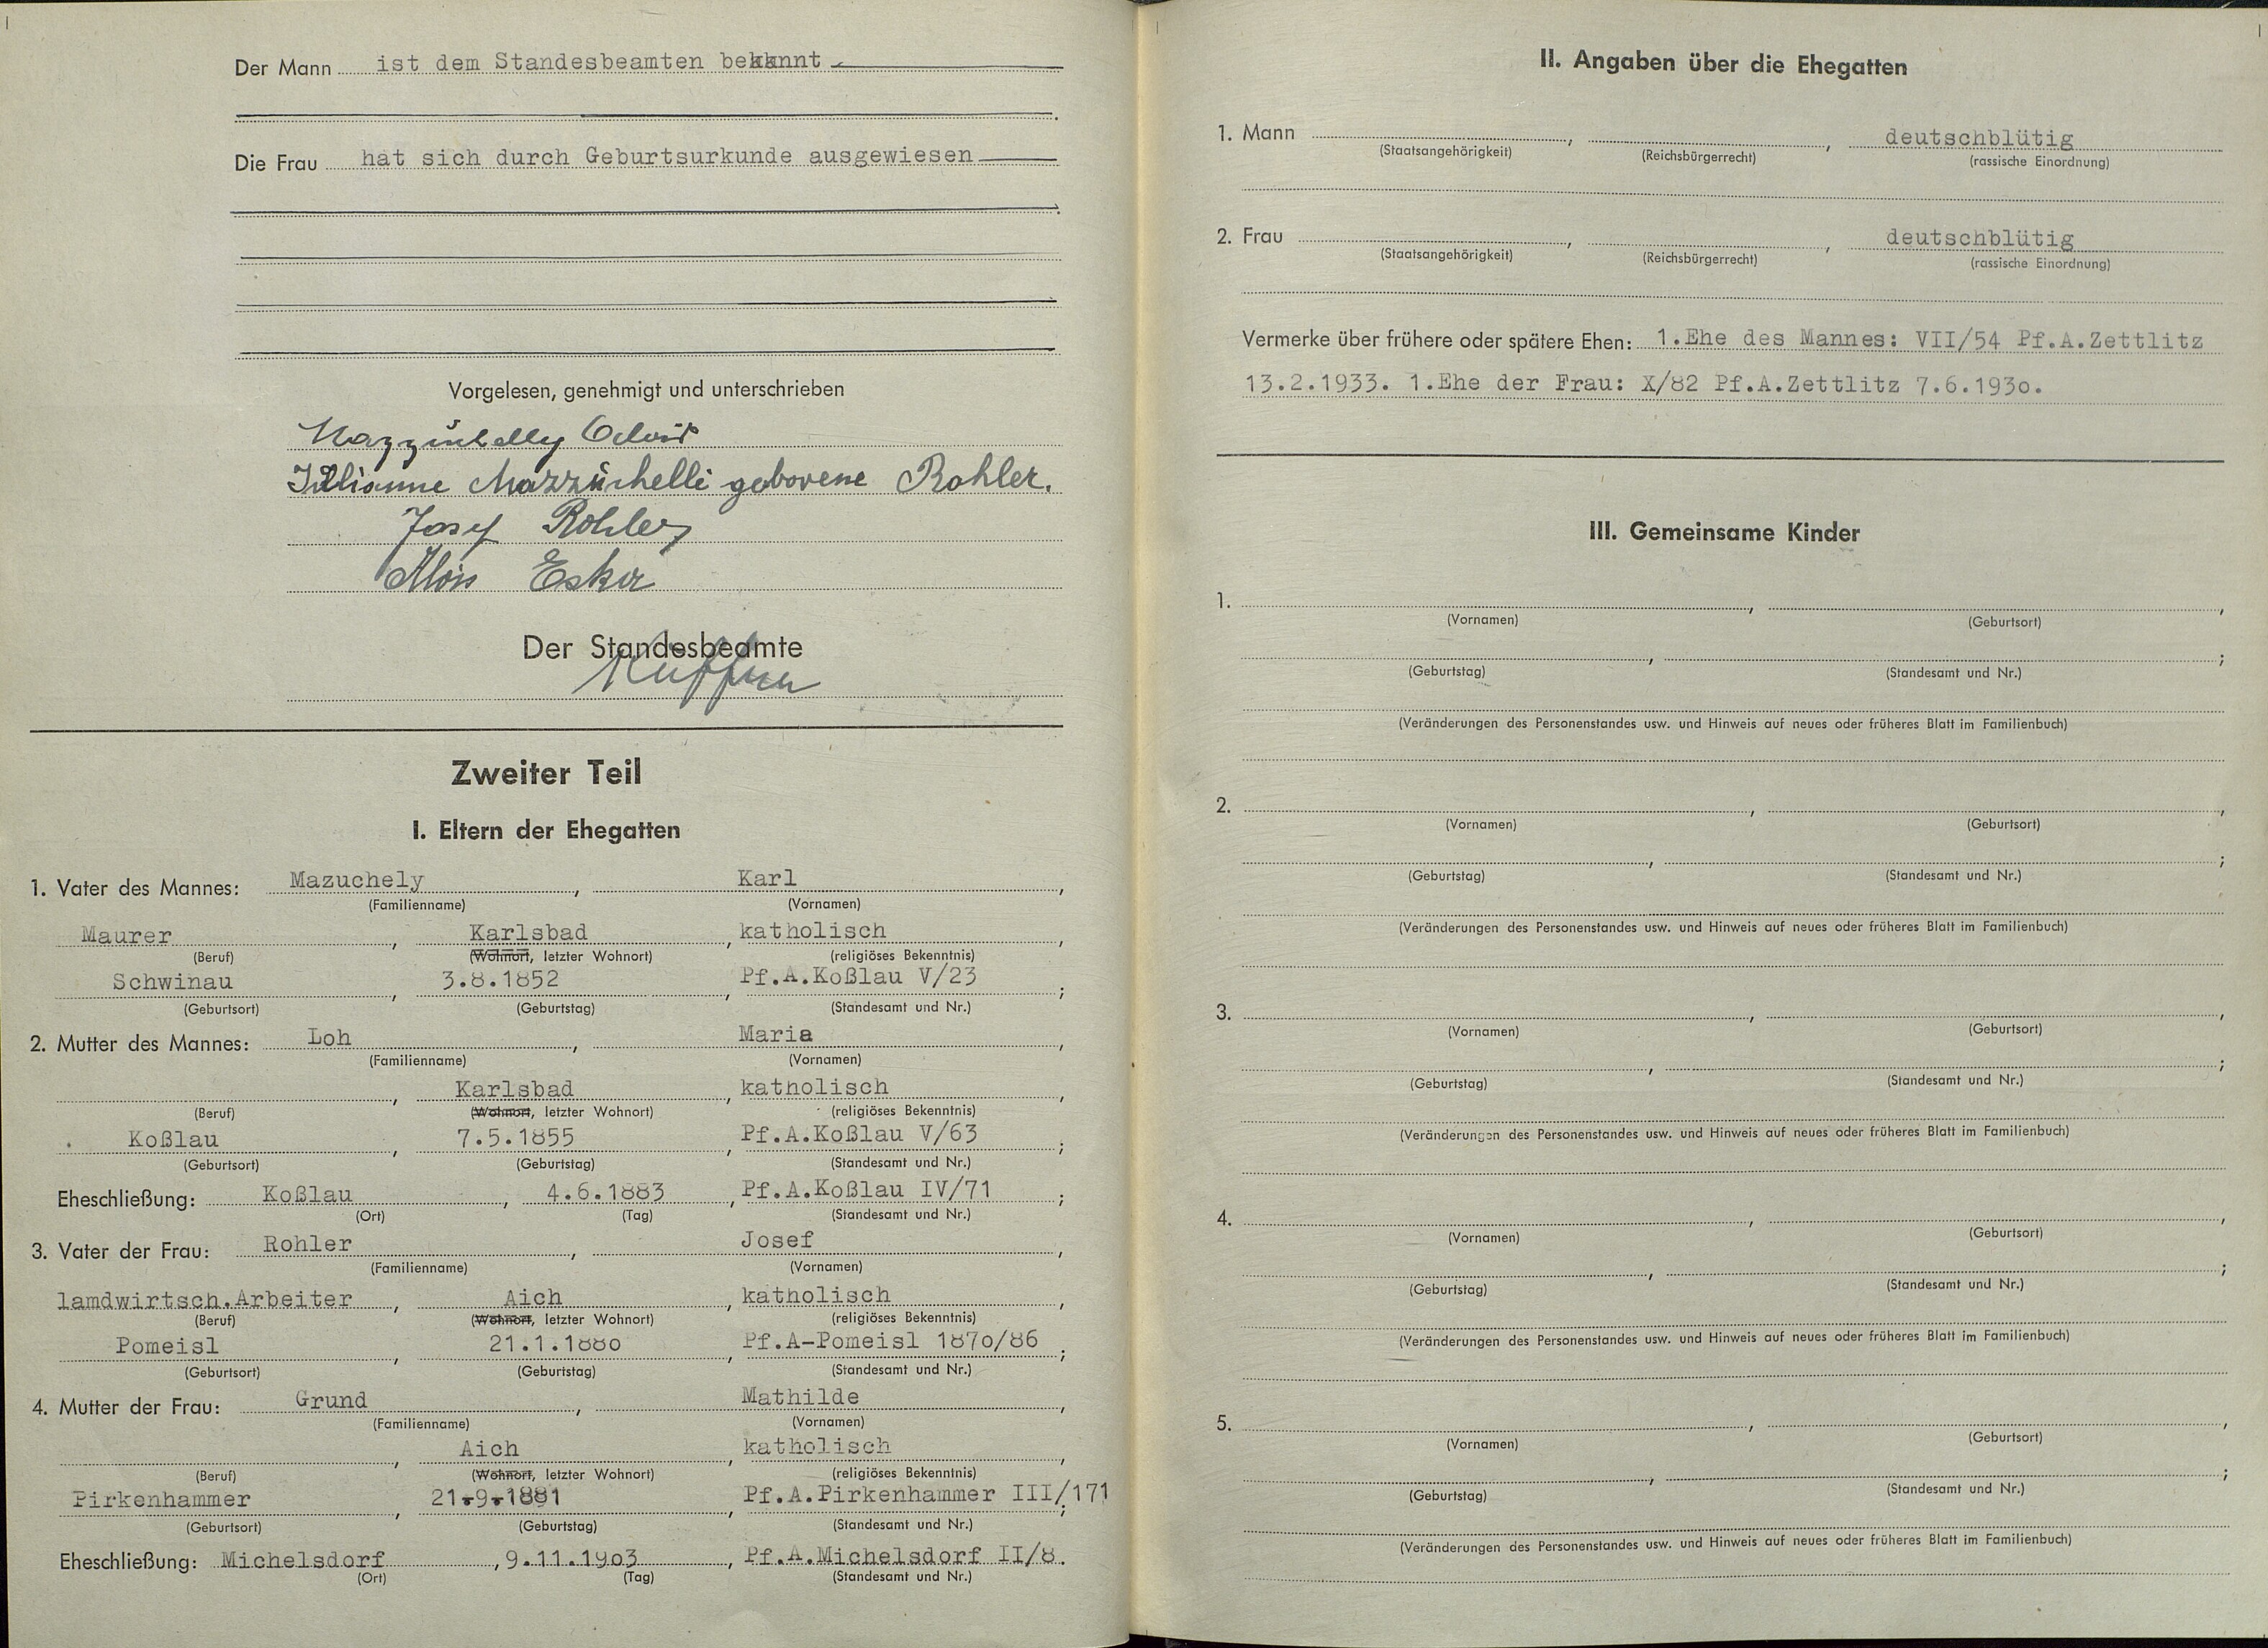 Der Mann ist dem Standesbeamten bekannt
Die Frau hat sich durch Geburtsurkunde ausgewiesen
Vorgelesen, genehmigt und unterschrieben
Mazzuchelly Alois
Julianne Mazzuchelli geborene Rohler.
Josef Rohler
Alois Esker
Der Standesbeamte
Zweiter Teil
I. Eltern der Ehegatten
1. Vater des Mannes: Mazuchely, Karl,
(Familienname) (Vornamen)
Maurer, Karlsbad, katholisch,
(Beruf) (Wohnort, letzter Wohnort) (religiöses Bekenntnis)
Schwinau, 3.8.1852, Pf.A.Koßlau V/23;
(Geburtsort) (Geburtstag) (Standesamt und Nr.)
2. Mutter des Mannes: Loh, Maria,
(Familienname) (Vornamen)
, Karlsbad, katholisch,
(Beruf) (Wohnort, letzter Wohnort) (religiöses Bekenntnis)
Koßlau, 7.5.1855, Pf.A.Koßlau V/63;
(Geburtsort) (Geburtstag) (Standesamt und Nr.)
Eheschließung: Koßlau, 4.6.1883, Pf.A.Koßlau IV/71;
(Ort) (Tag) (Standesamt und Nr.)
3. Vater der Frau: Rohler, Josef,
(Familienname) (Vornamen)
lamdwirtsch.Arbeiter, Aich, katholisch,
(Beruf) (Wohnort, letzter Wohnort) (religiöses Bekenntnis)
Pomeisl, 21.1.188o, Pf.A-Pomeisl 187o/86;
(Geburtsort) (Geburtstag) (Standesamt und Nr.)
4. Mutter der Frau: Grund, Mathilde,
(Familienname) (Vornamen)
, Aich, katholisch,
(Beruf) (Wohnort, letzter Wohnort) (religiöses Bekenntnis)
Pirkenhammer, 21.9.1881, Pf.A.Pirkenhammer III/171;
(Geburtsort) (Geburtstag) (Standesamt und Nr.)
Eheschließung: Michelsdorf, 9.11.19o3, Pf.A.Michelsdorf II/8.
(Ort) (Tag) (Standesamt und Nr.)
II. Angaben über die Ehegatten
1. Mann , , deutschblütig
(Staatsangehörigkeit) (Reichsbürgerrecht) (rassische Einordnung)
2. Frau , , deutschblütig
(Staatsangehörigkeit) (Reichsbürgerrecht) (rassische Einordnung)
Vermerke über frühere oder spätere Ehen: 1.Ehe des Mannes: VII/54 Pf.A.Zettlitz
13.2.1933. 1.Ehe der Frau: X/82 Pf.A.Zettlitz 7.6.193o.
III. Gemeinsame Kinder
1. , ,
(Vornamen) (Geburtsort)
, ;
(Geburtstag) (Standesamt und Nr.)
(Veränderungen des Personenstandes usw. und Hinweis auf neues oder früheres Blatt im Familienbuch)
2. , ,
(Vornamen) (Geburtsort)
, ;
(Geburtstag) (Standesamt und Nr.)
(Veränderungen des Personenstandes usw. und Hinweis auf neues oder früheres Blatt im Familienbuch)
3. , ,
(Vornamen) (Geburtsort)
, ;
(Geburtstag) (Standesamt und Nr.)
(Veränderungen des Personenstandes usw. und Hinweis auf neues oder früheres Blatt im Familienbuch)
4. , ,
(Vornamen) (Geburtsort)
, ;
(Geburtstag) (Standesamt und Nr.)
(Veränderungen des Personenstandes usw. und Hinweis auf neues oder früheres Blatt im Familienbuch)
5. , ,
(Vornamen) (Geburtsort)
, ;
(Geburtstag) (Standesamt und Nr.)
(Veränderungen des Personenstandes usw. und Hinweis auf neues oder früheres Blatt im Familienbuch)